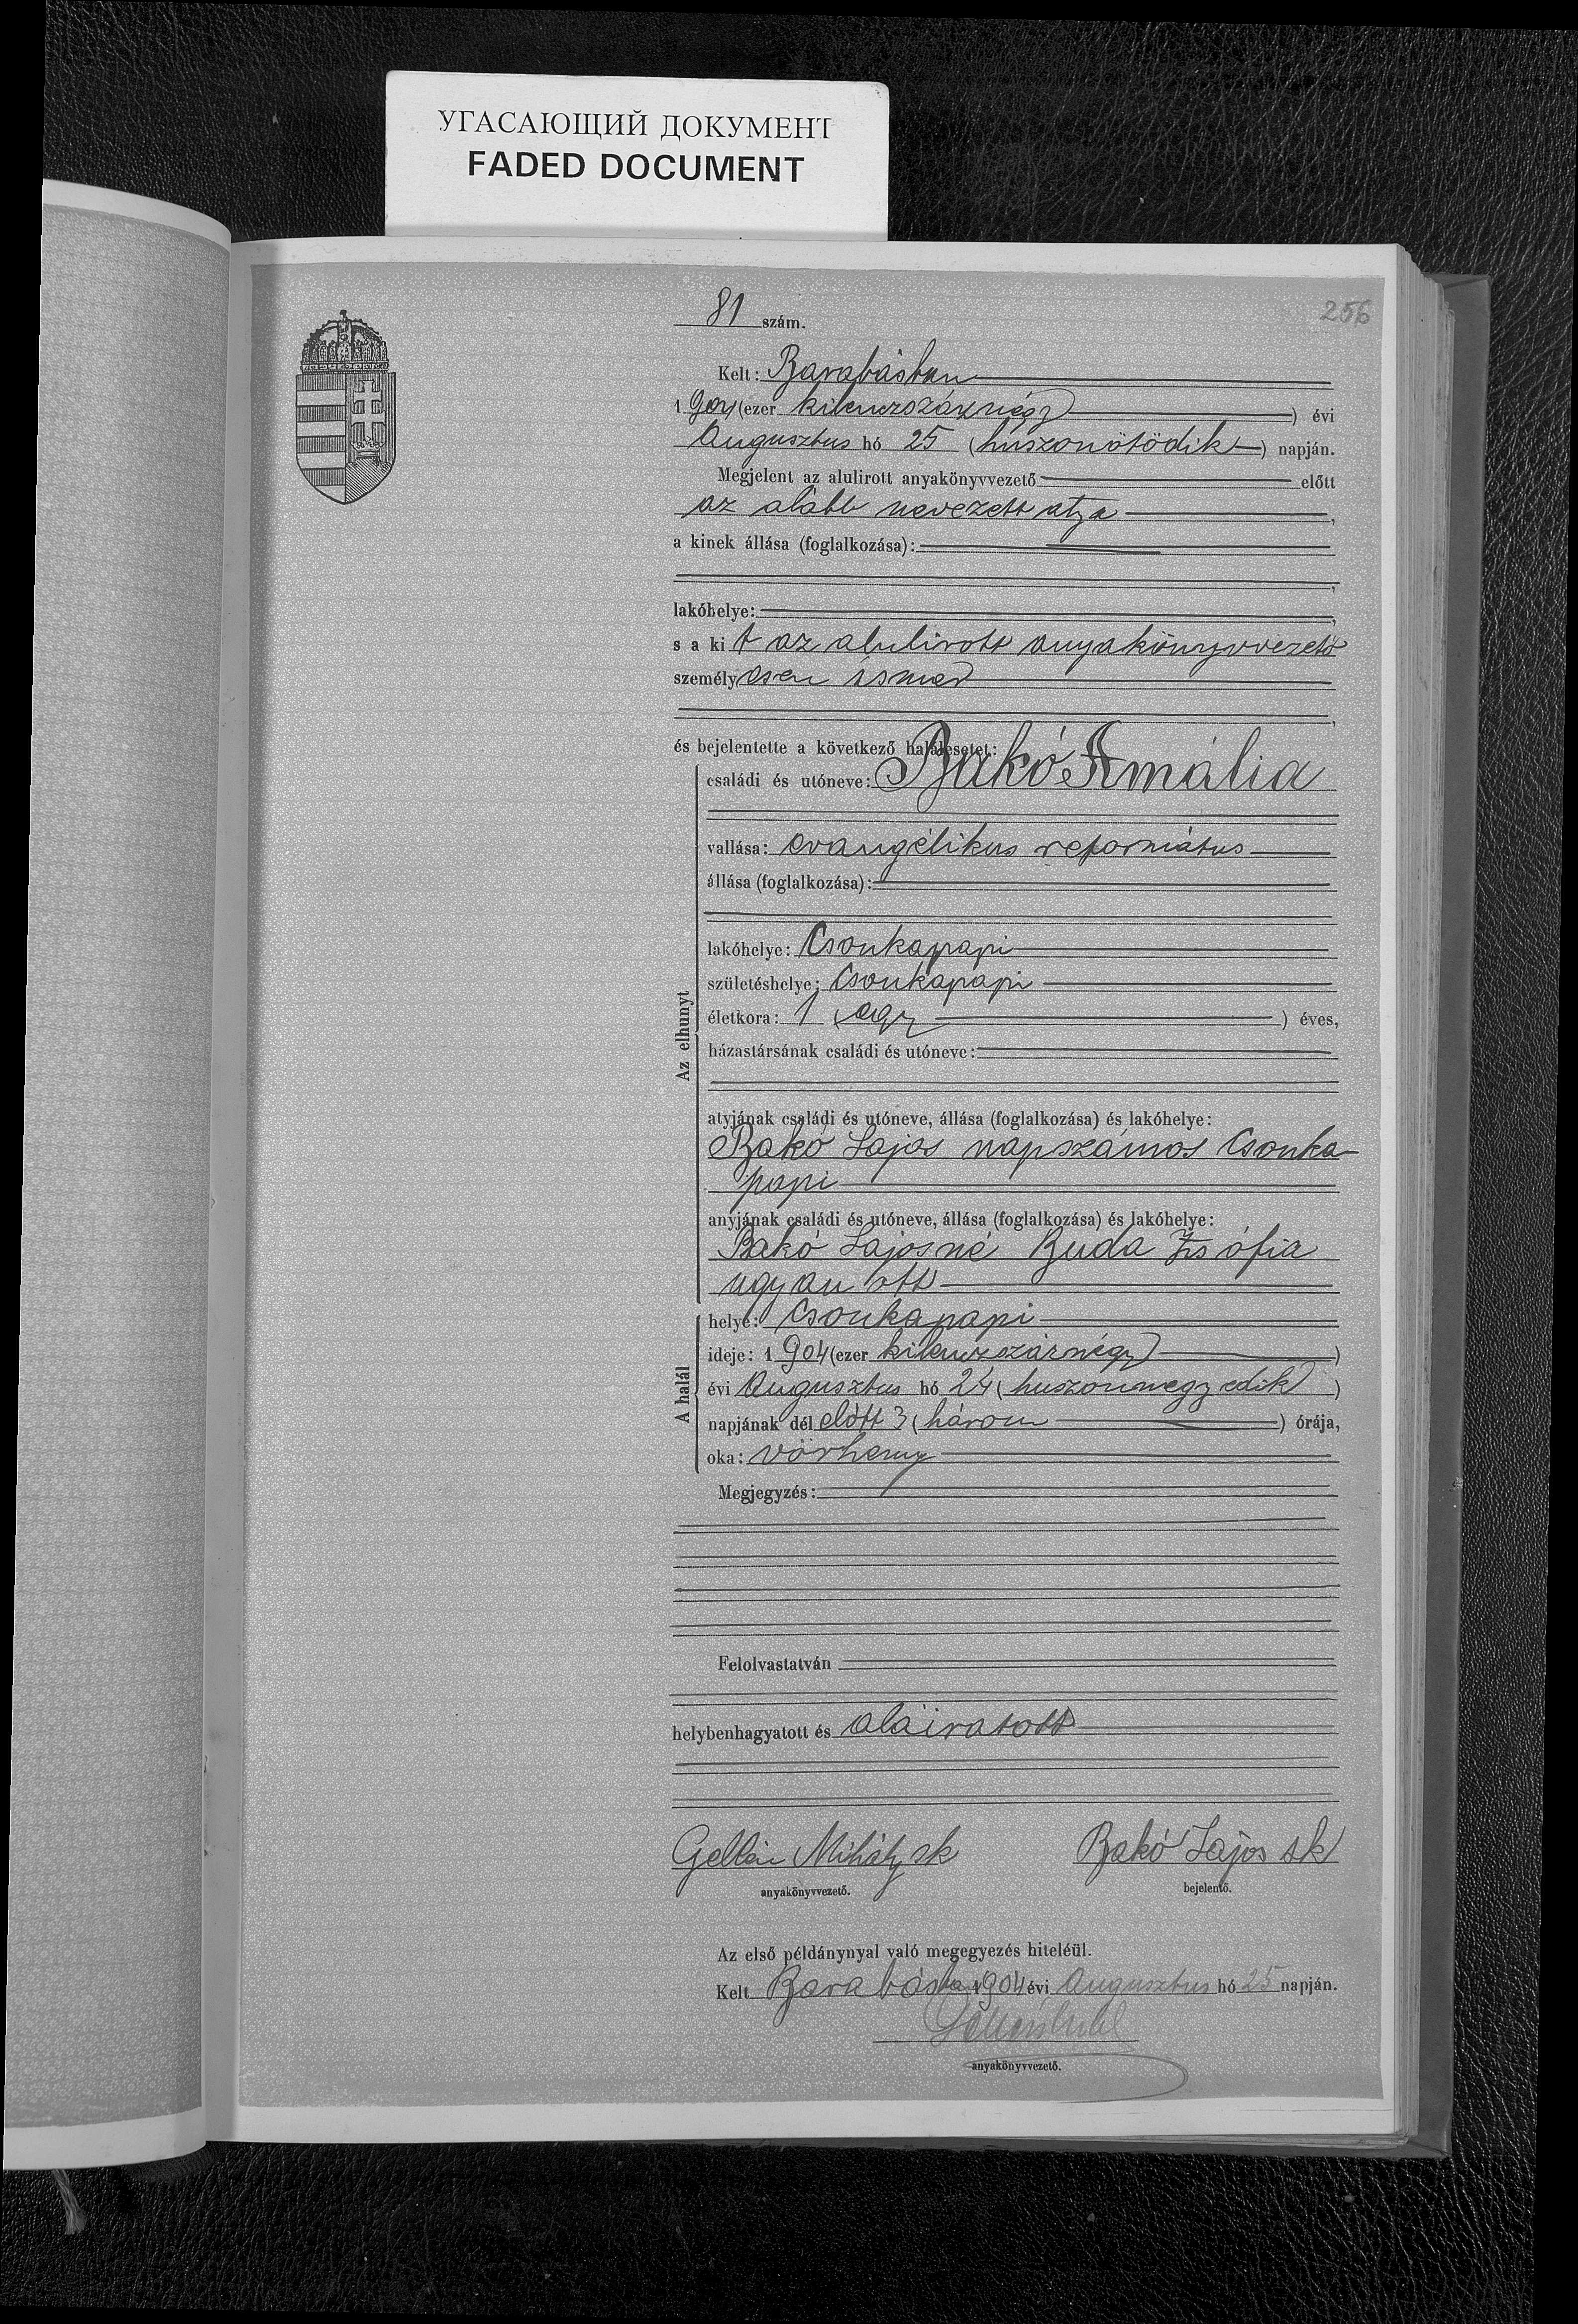 УГАСАЮЩИЙ ДОКУМЕНТ
FADED DOCUMENT
256
81 szám.
Kelt: Barabásban
1904 (ezer kilenczszáznégy) évi
Augusztus hó 25 (huszonötödik) napján.
Megjelent az alulirott anyakönyvvezető előtt
az alább nevezett atya,
a kinek állása (foglalkozása):
lakóhelye:
s a kit az alulirott anyakönyvvezető
személyesen ismer
és bejelentette a következő halálesetet:
családi és utóneve: Bakó Amália
vallása: evangélikus református
állása (foglalkozása):
lakóhelye: Csonkapapi
születéshelye: Csonkapapi
életkora: 1 (egy) éves,
házastársának családi és utóneve:
Az elhunyt
atyjának családi és utóneve, állása (foglalkozása) és lakóhelye:
Bakó Lajos napszámos Csonka
papi
anyjának családi és utóneve, állása (foglalkozása) és lakóhelye:
Bakó Lajosné Buda Zsófia
ugyan ott
helye: Csonkapapi
ideje: 1904 (ezer kilenczszáznégy)
évi Augusztus hó 24 (huszonnegyedik)
A halál
napjának dél előtt 3 (három) órája,
oka: vörheny
Megjegyzés:
Felolvastatván
helybenhagyatott és aláiratott
Gellén Mihály sk Bakó Lajos sk
anyakönyvvezető. bejelentő.
Az első példánynyal való megegyezés hiteléül.
Kelt Barabásban 1904 évi Augusztus hó 25 napján.
anyakönyvvezető.